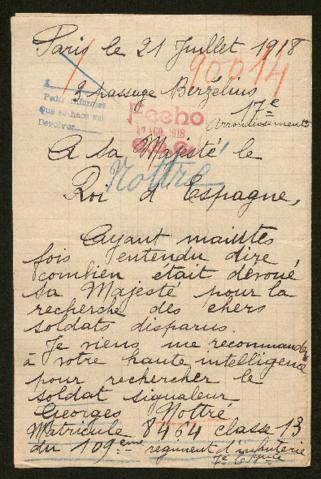 Paris le 21 Juillet 1918
90014
2 passage Berzélius
17e
Arrondissement
Pedir informes
Que se hace así
Devolver
Fecho
12 AGO. 1918
A Sa Majesté le
Nottré
Roi d'Espagne,
Ayant maintes
fois entendu dire
combien était dévoué
Sa Majesté pour la
recherche des chers
soldats disparus.
Je viens me recommander
à votre haute intelligence
pour rechercher le
soldat signaleur
Georges Nottré
Matricule 8464 classe 13
du 109ème régiment d'infanterie
7e Cie